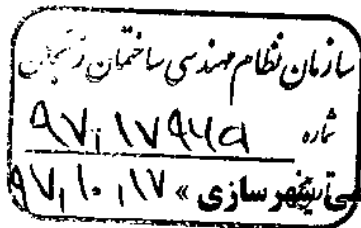 سازمان نظام مهندسی ساختمان زنجان
شماره ۹۷/۱۷۹۴۵
۹۷/۱۰/۱۷ شهرسازی »